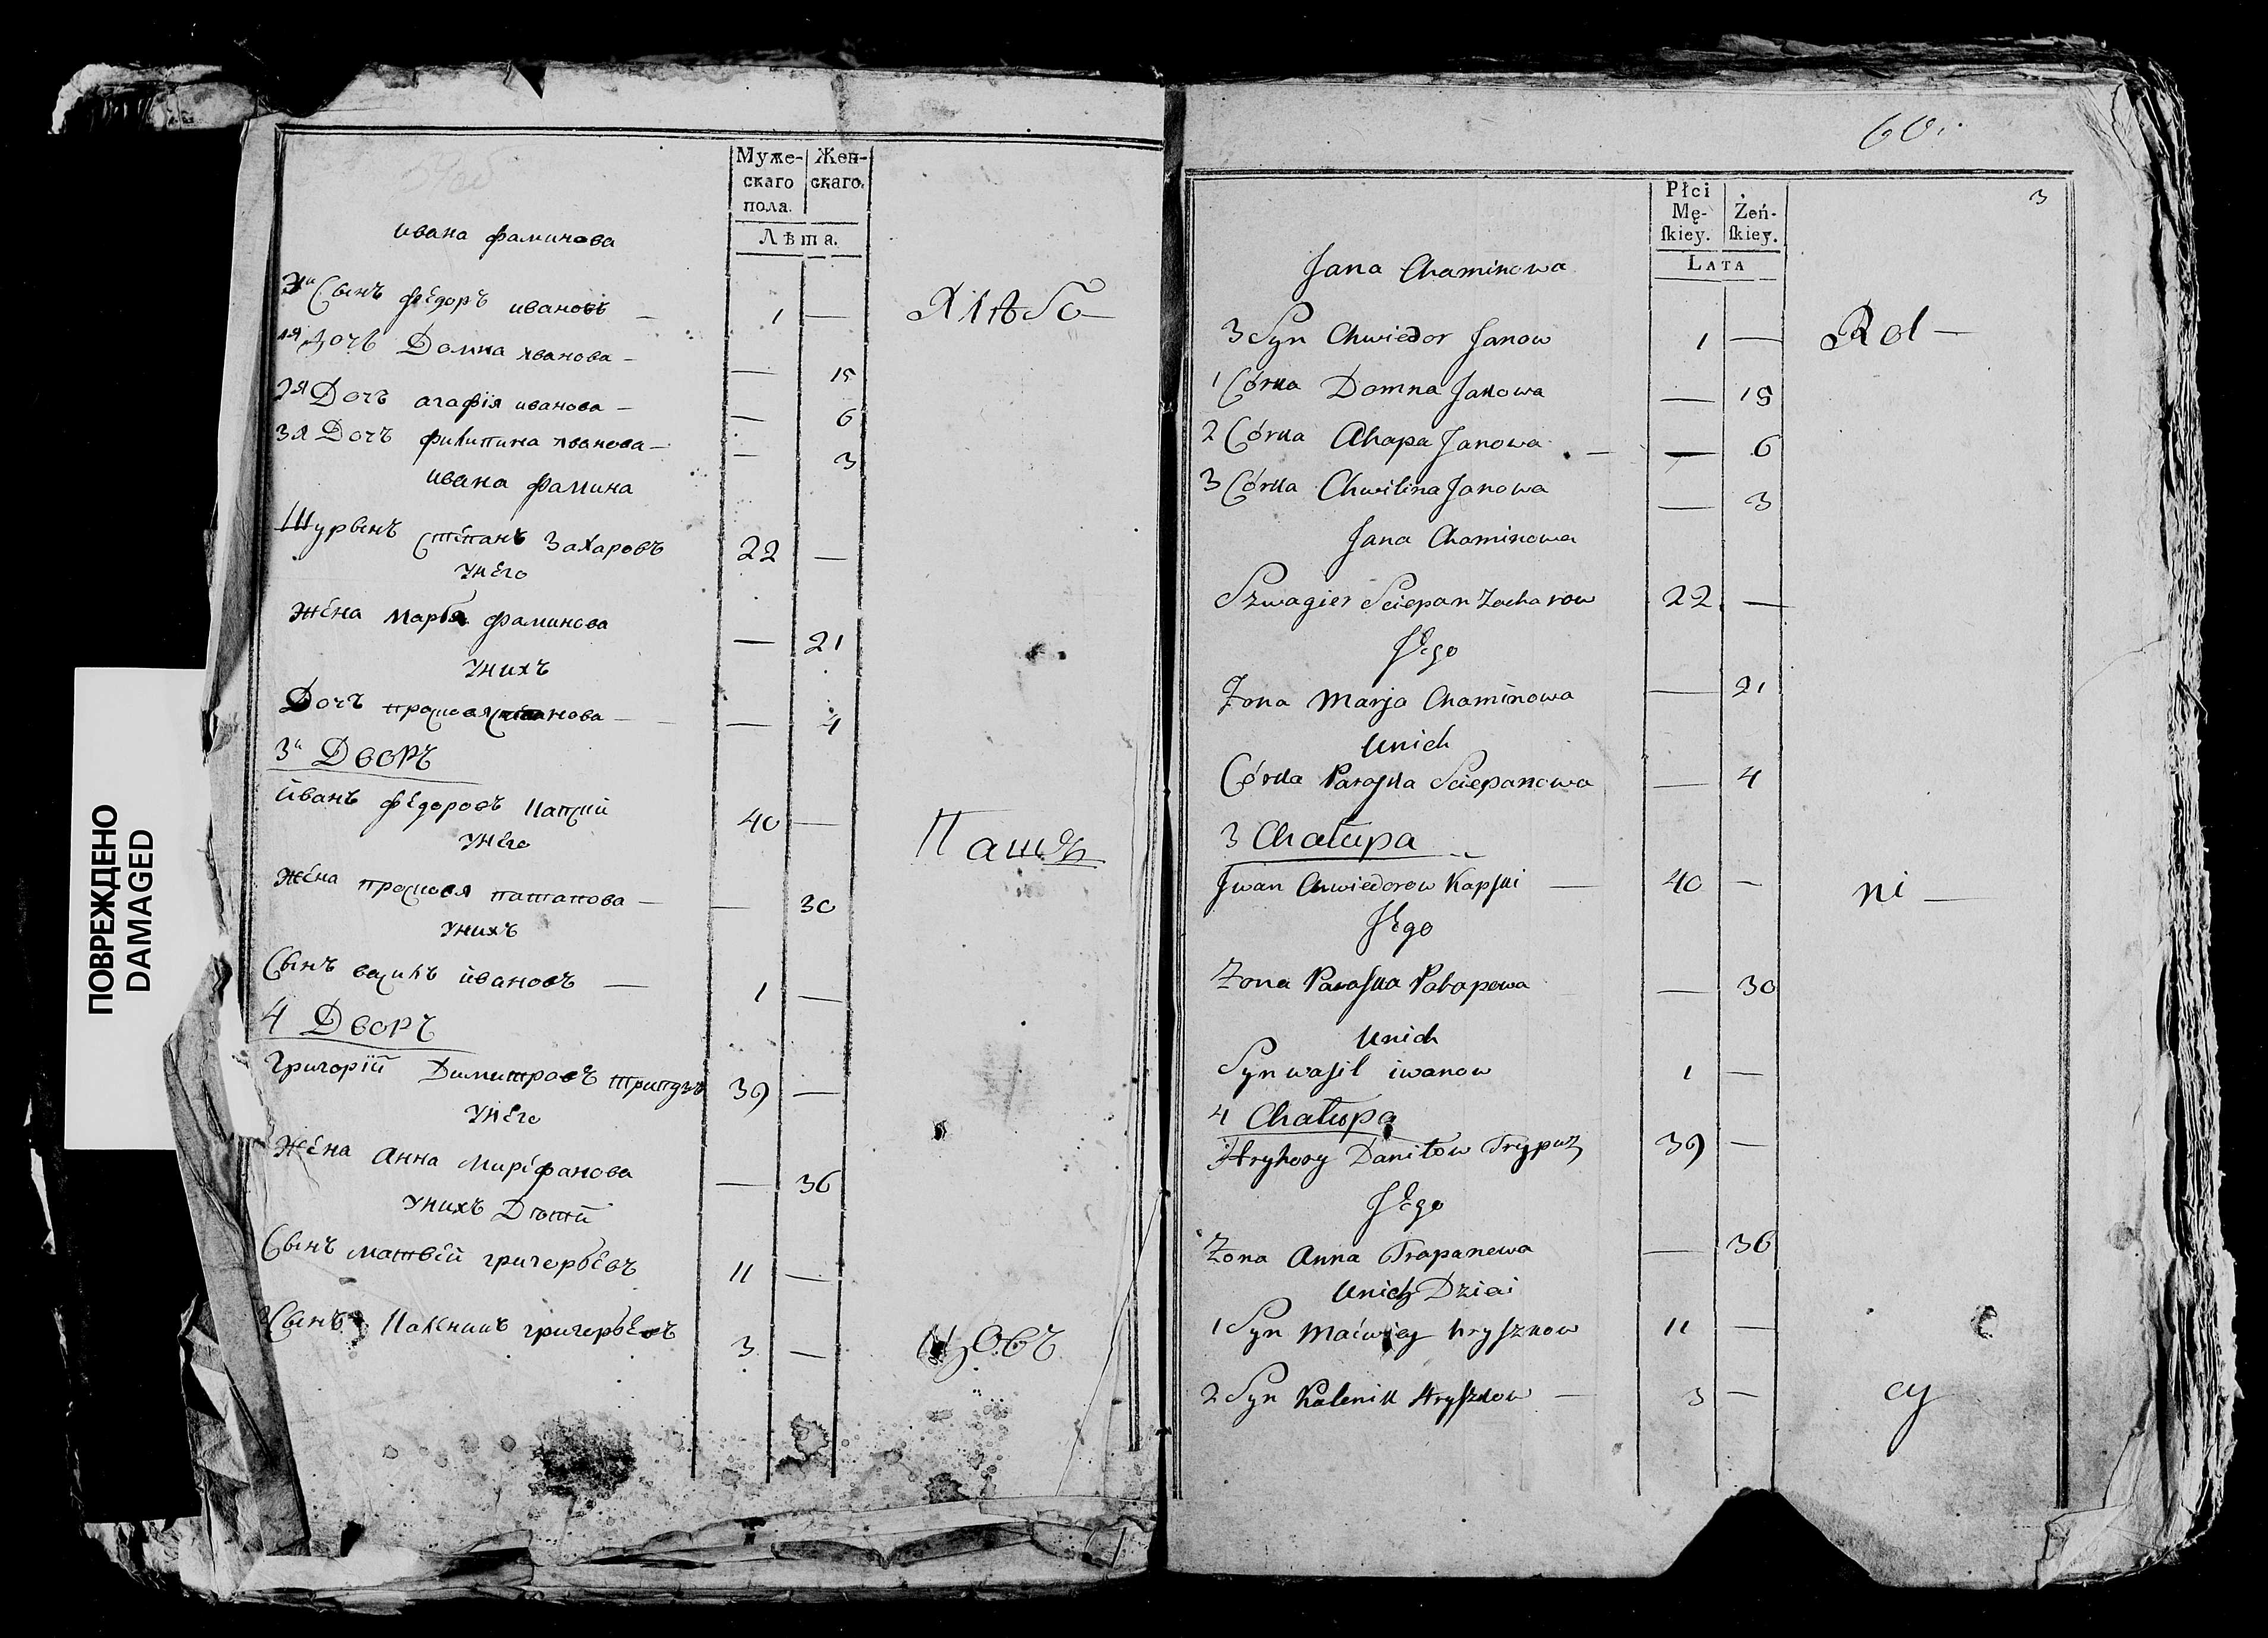 ПОВРЕЖДЕНО
DAMAGED
Муже-
скаго
пола.
Жен-
скаго.
Лѣта.
Ивана Фаминова
3й Сынъ Фёдоръ Ивановъ — 1 —
Хлѣбо-
1я Дочь Домна Иванова — — 15
2я Дочь Агафія Иванова — — 6
3я Дочь Филипина Иванова — — 3
Ивана Фамина
Шурынъ Степанъ Захаровъ 22 —
У него
Жена Марья Фаминова — 21
У нихъ
Дочь — 4
3й Дворъ
Иванъ Фёдоровъ Капскій 40 —
Пашъ
У него
Жена Прасковья Патапова — — 30
У нихъ
Сынъ Василь Ивановъ — 1 —
4 Дворъ
Григорій Димитровъ 39 —
У него
Жена Анна — 36
У нихъ Дѣти
Сынъ Матвей Григорьевъ 11 —
Сынъ Каленикъ Григорьевъ 3 —
цовъ
60.
3
Płci
Mę-
ſkiey.
Żeń-
ſkiey.
LATA
Jana Chaminowa
3 Syn Chwiedor Janow 1 —
Rol —
1 Córka Domna Janowa — 15
2 Córka Ahapa Janowa — — 6
3 Córka Chwilina Janowa — 3
Jana Chaminowa
Szwagier Sciepan Zacharow 22 —
Jego
Zona Marja Chaminowa — 21
Unich
Córka Paraſka Sciepanowa — 4
3 Chałupa
Jwan Chwiedorow Kapſki — 40 —
ni —
Jego
Zona Paraſka Patapowa — 30
Unich
Syn waſil iwanow 1 —
4 Chałupa
Hryhory Daniłow Trypuz 39 —
Jego
Zona Anna Trapanowa — 36
Unich Dziei
1 Syn Maćwiey hryſzkow 11 —
2 Syn Kalenik Hryſzkow — 3 —
cy